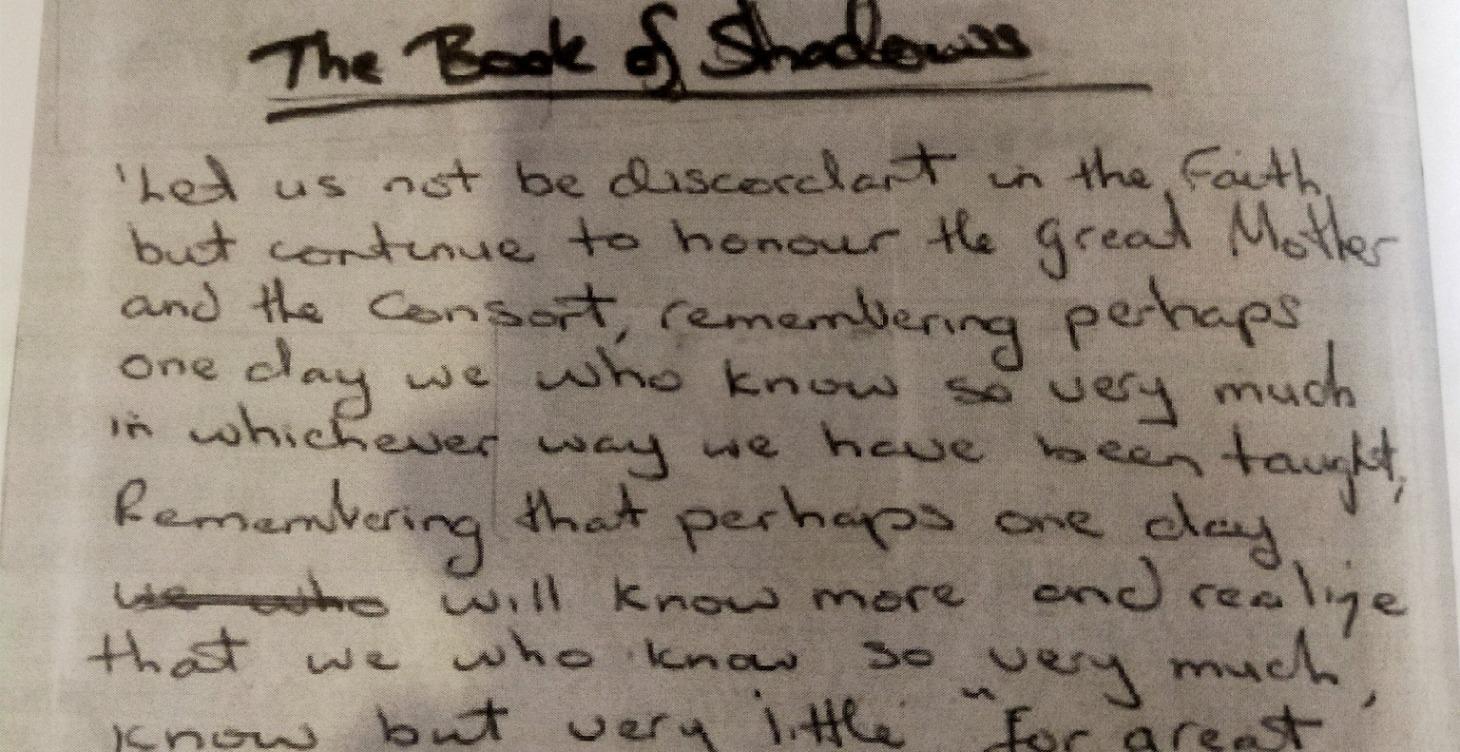 The Book of Shadows
'Let us not be discordant in the Faith,
but continue to honour the great Mother
and the Consort, remembering perhaps
one day we who know so very much
in whichever way we have been taught,
Remembering that perhaps one day
we who will know more and realize
that we who know so very much,
know but very little "for great